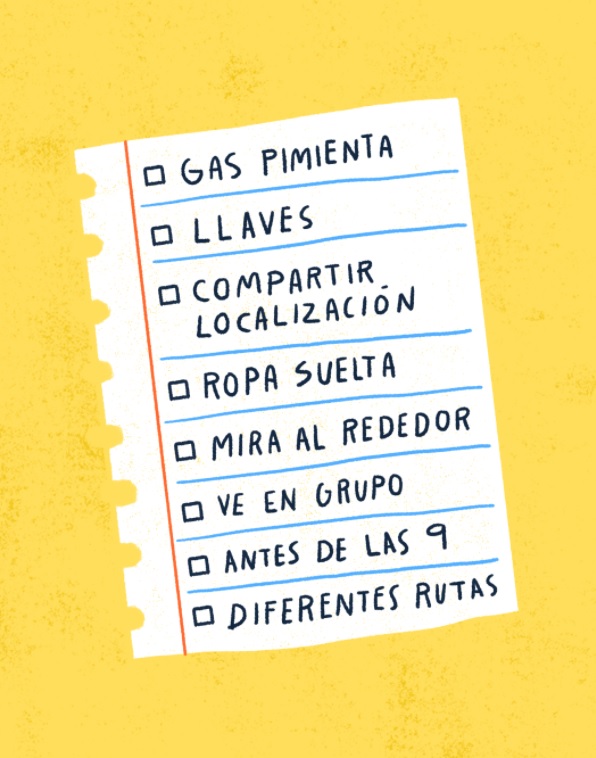 GAS PIMIENTA
LLAVES
COMPARTIR
LOCALIZACIÓN
ROPA SUELTA
MIRA AL REDEDOR
VE EN GRUPO
ANTES DE LAS 9
DIFERENTES RUTAS